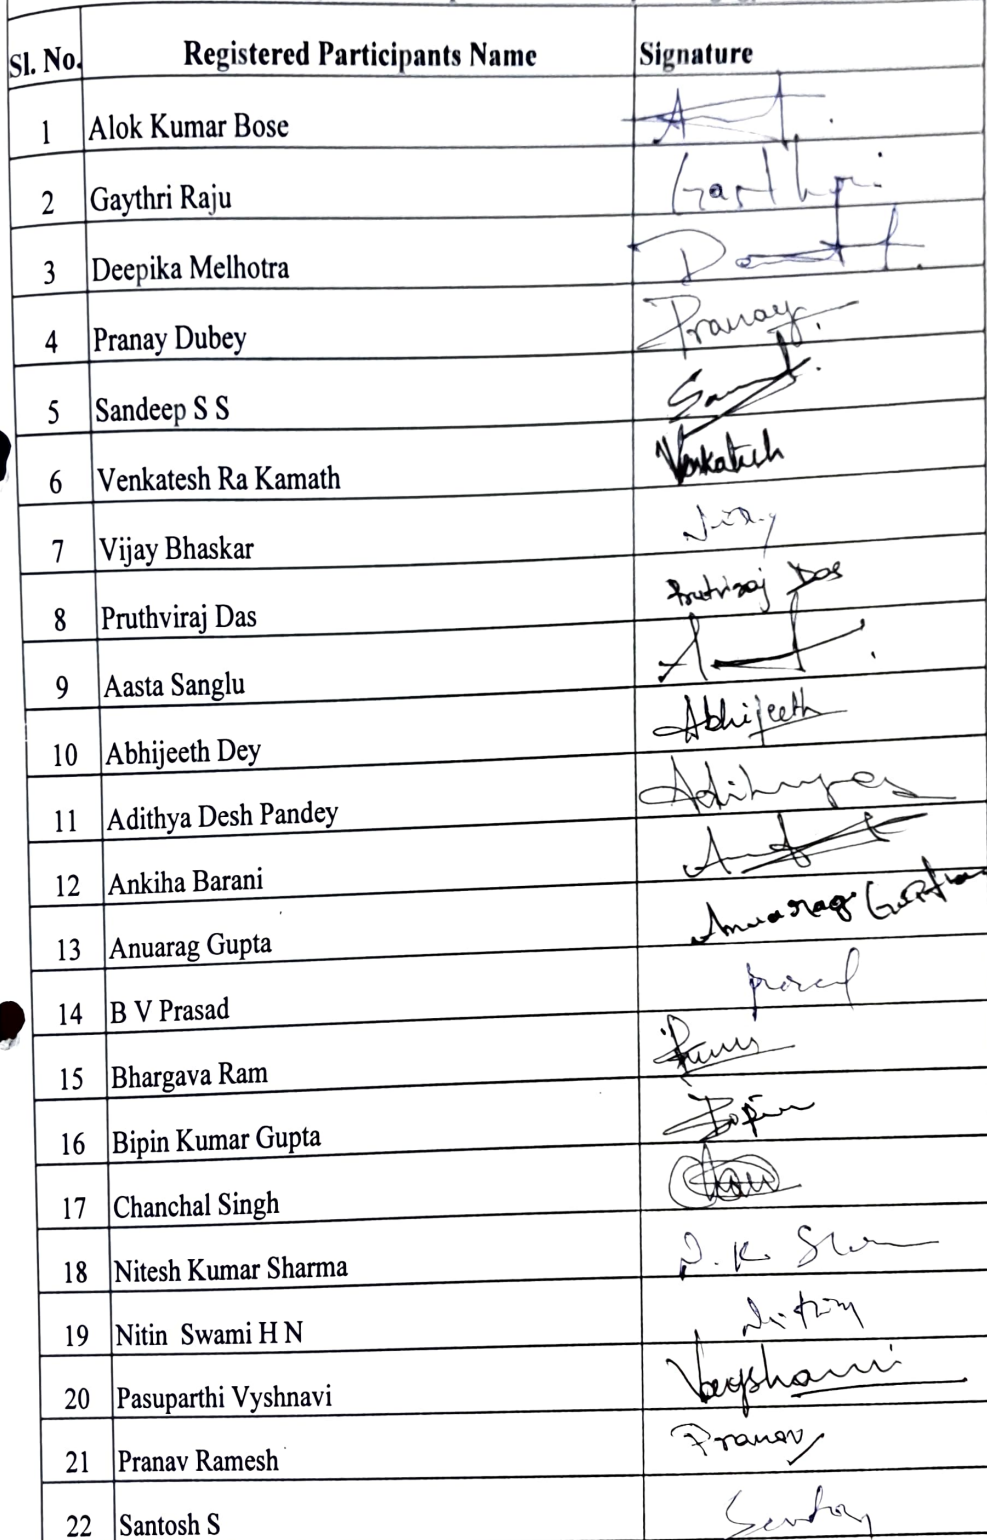 Sl. No. Registered Participants Name Signature
1 Alok Kumar Bose
2 Gaythri Raju
3 Deepika Melhotra
4 Pranay Dubey Pranay
5 Sandeep S S
6 Venkatesh Ra Kamath Venkatesh
7 Vijay Bhaskar
8 Pruthviraj Das Das
9 Aasta Sanglu
10 Abhijeeth Dey Abhijeeth
11 Adithya Desh Pandey
12 Ankiha Barani
13 Anuarag Gupta Anuarag Gupta
14 B V Prasad
15 Bhargava Ram
16 Bipin Kumar Gupta Bipin
17 Chanchal Singh
18 Nitesh Kumar Sharma N. K.
19 Nitin Swami H N
20 Pasuparthi Vyshnavi
21 Pranav Ramesh Pranav
22 Santosh S